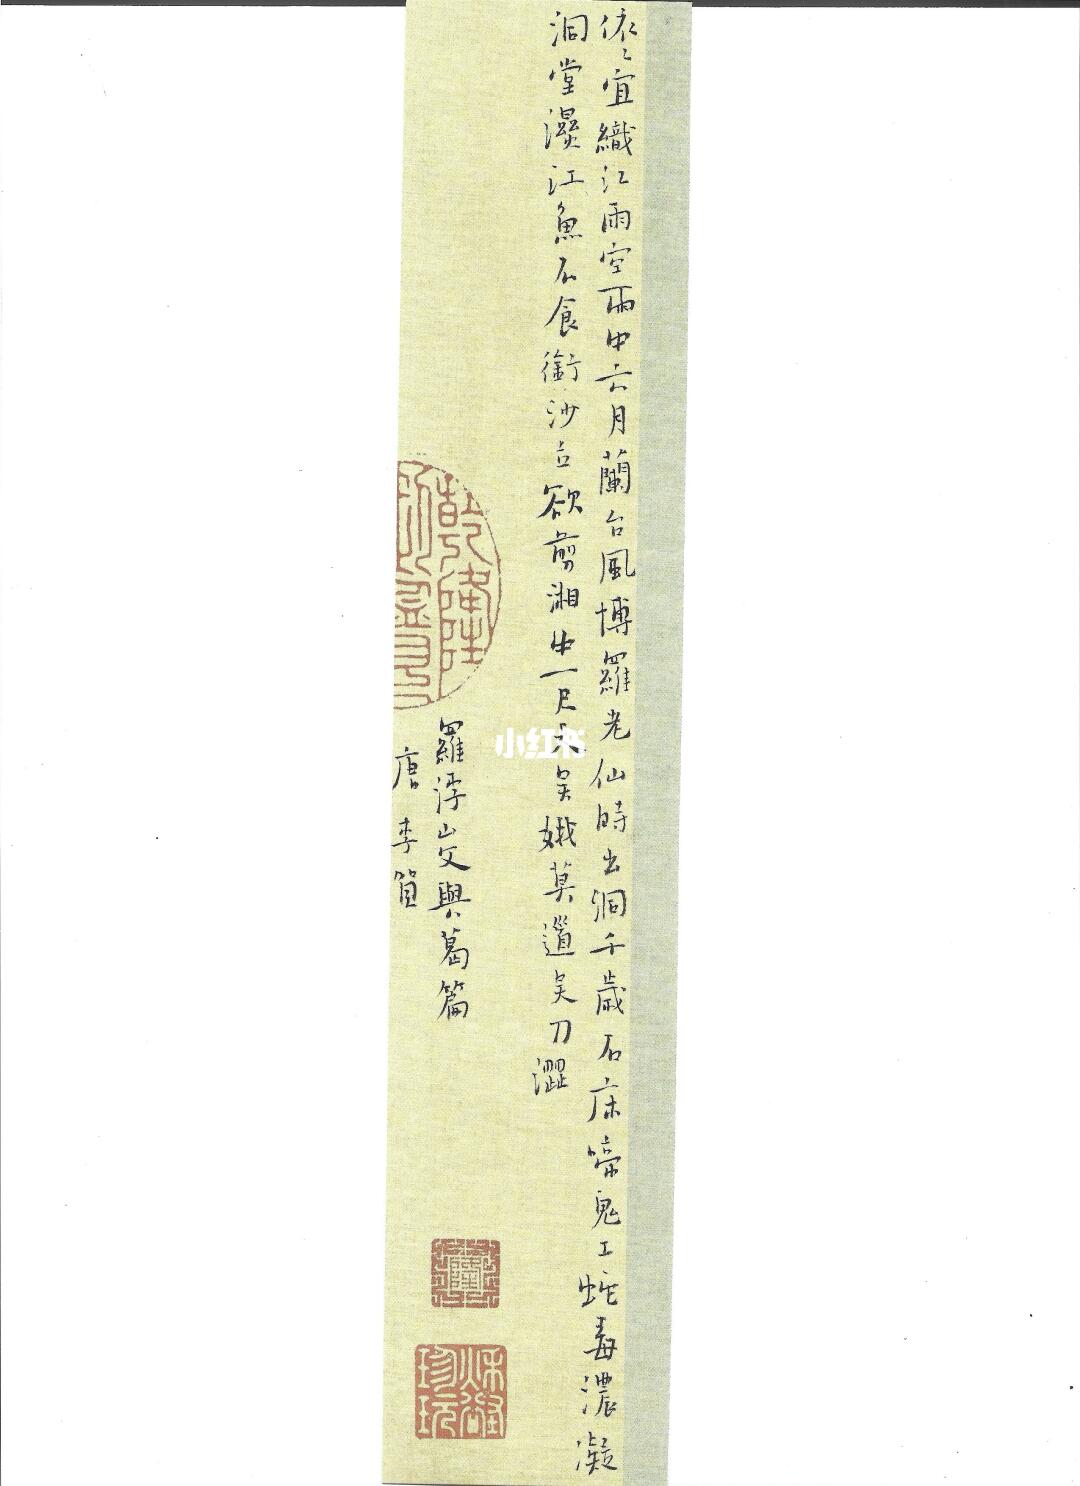 依〻宜織江雨空雨中六月蘭台風博羅老仙時出洞千歲石床啼鬼工蛇毒濃凝
洞堂濕江魚不食銜沙立欲剪湘中一尺天吳娥莫道吳刀澀
羅浮山父與葛篇
唐李賀
乾隆
小红书
珍玩